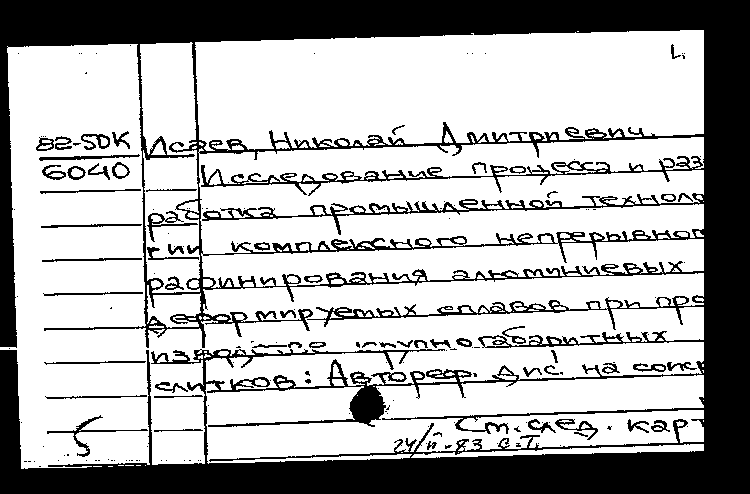 L.
82-5DK Исаев, Николай Дмитриевич.
6040 Исследование процесса и раз
работка промышленной техноло
гии комплексного непрерывног
рафинирования алюминиевых
деформируемых сплавов при про
изводстве крупногабаритных
слитков: Автореф. дис. на соиск
См. след. карт
5 24/II-83 С.Т.